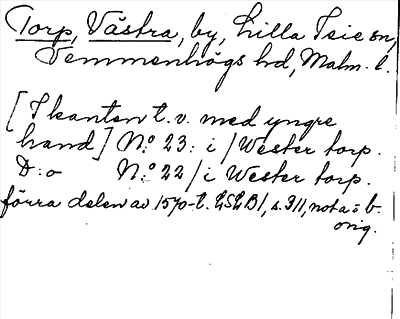 Torp, Västra, by, Lilla Isie sn,
Vemmenhögs hd, Malm. l.
[I kanten t. v. med yngre
hand] N:o 23: i / Wester torp.
D:o N:o 22 / i Wester torp.
förra delen av 1570-t. LSLB1, s. 311, not a o b.
orig.